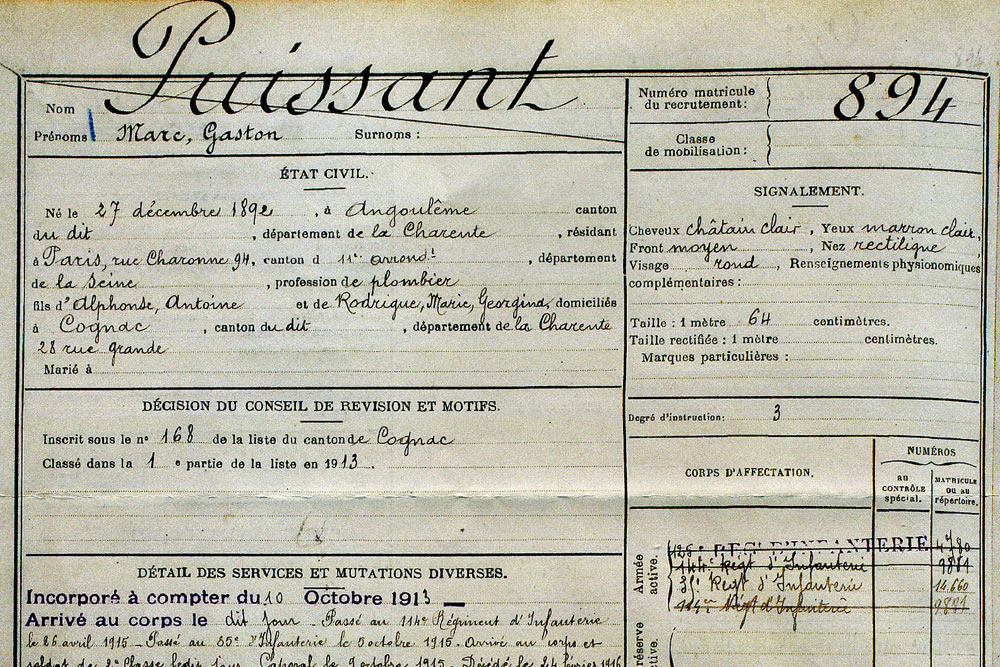 Puissant
Nom
Prénoms Marc, Gaston Surnoms :
Numéro matricule
du recrutement :
894
Classe
de mobilisation :
ÉTAT CIVIL.
Né le 27 décembre 1892, à Angoulême canton
du dit, département de la Charente, résidant
à Paris, rue Charonne 94, canton d 11e arrondt, département
de la Seine, profession de plombier
fils d'Alphonse, Antoine et de Rodrigue, Marie, Georgina, domiciliés
à Cognac, canton du dit, département de la Charente
28 rue grande
Marié à
SIGNALEMENT.
Cheveux châtain clair, Yeux marron clair,
Front moyen Nez rectiligne
Visage rond, Renseignements physionomiques
complémentaires :
Taille : 1 mètre 64 centimètres.
Taille rectifiée : 1 mètre centimètres.
Marques particulières :
Degré d'instruction : 3
DÉCISION DU CONSEIL DE REVISION ET MOTIFS.
Inscrit sous le n° 168 de la liste du canton de Cognac
Classé dans la 1 e partie de la liste en 1913.
CORPS D'AFFECTATION.
NUMÉROS
AU
CONTRÔLE
spécial.
MATRICULE
OU AU
répertoire.
Armée
active.
D'INFANTERIE 4780
114e Régt d'Infanterie 9881
Régt d'Infanterie 14.660
114e Régt d'Infanterie 9881
réserve
active.
DÉTAIL DES SERVICES ET MUTATIONS DIVERSES.
Incorporé à compter du 10 Octobre 1913
Arrivé au corps le dit jour. Passé au 114e Régiment d'Infanterie
le 26 avril 1915. Passé au 35e d'Infanterie le 5 octobre 1915. Arrivé au corps et
soldat de 2e classe ledit jour. Caporal le 9 octobre 1915. Décédé le 24 février 1916